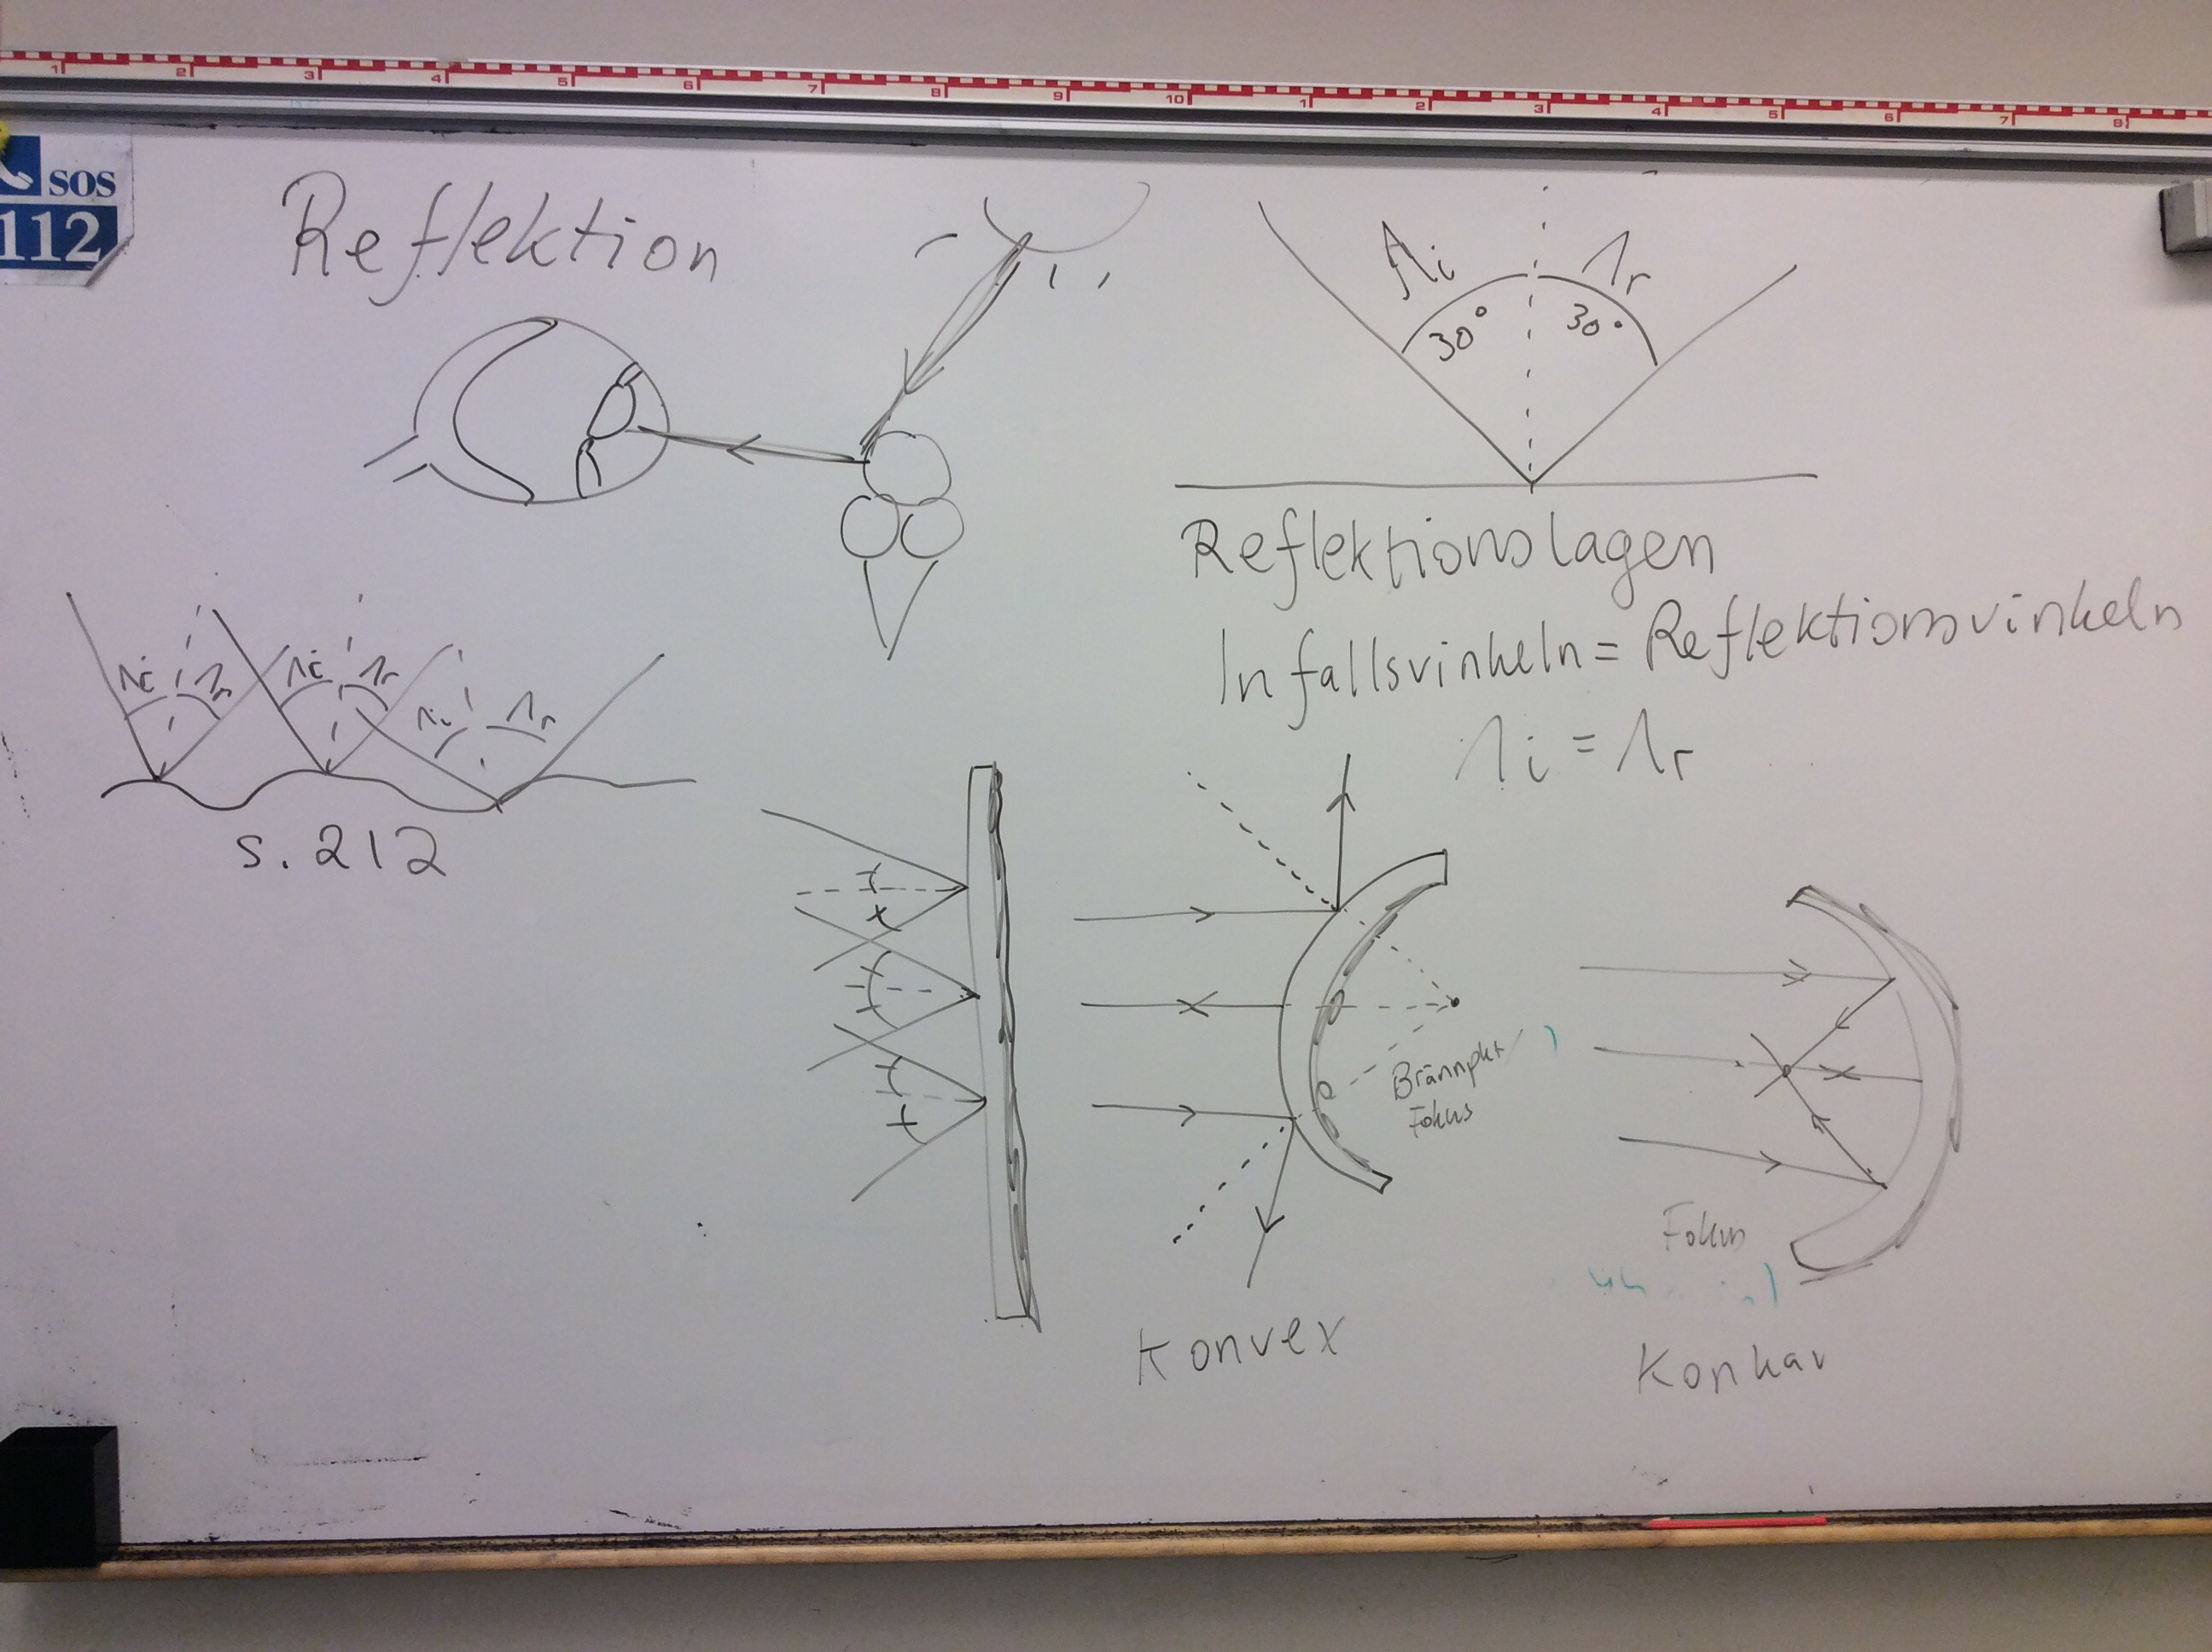 1 2 3 4 5 6 7 8 9 10 1 2 3 4 5 6 7 8
SOS
112
Reflektion
∧i ∧r
30° 30°
Reflektionslagen
Infallsvinkeln = Reflektionsvinkeln
∧i = ∧r
∧i ∧r ∧i ∧r ∧i ∧r
s. 212
Brännpkt
Fokus
Fokus
Konvex
Konkav